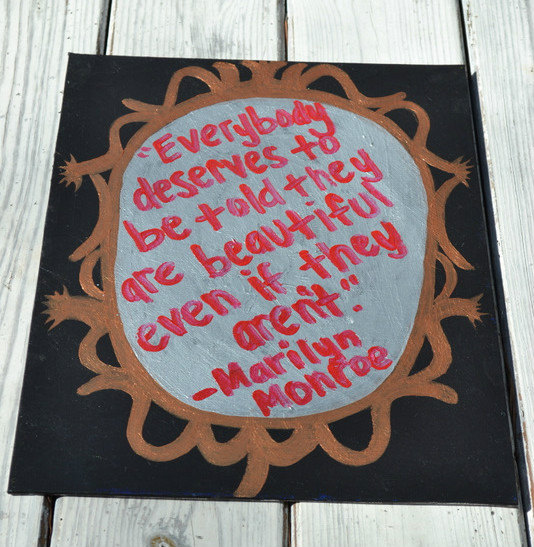 "Everybody
deserves to
be told they
are beautiful
even if they
aren't."
-Marilyn
Monroe